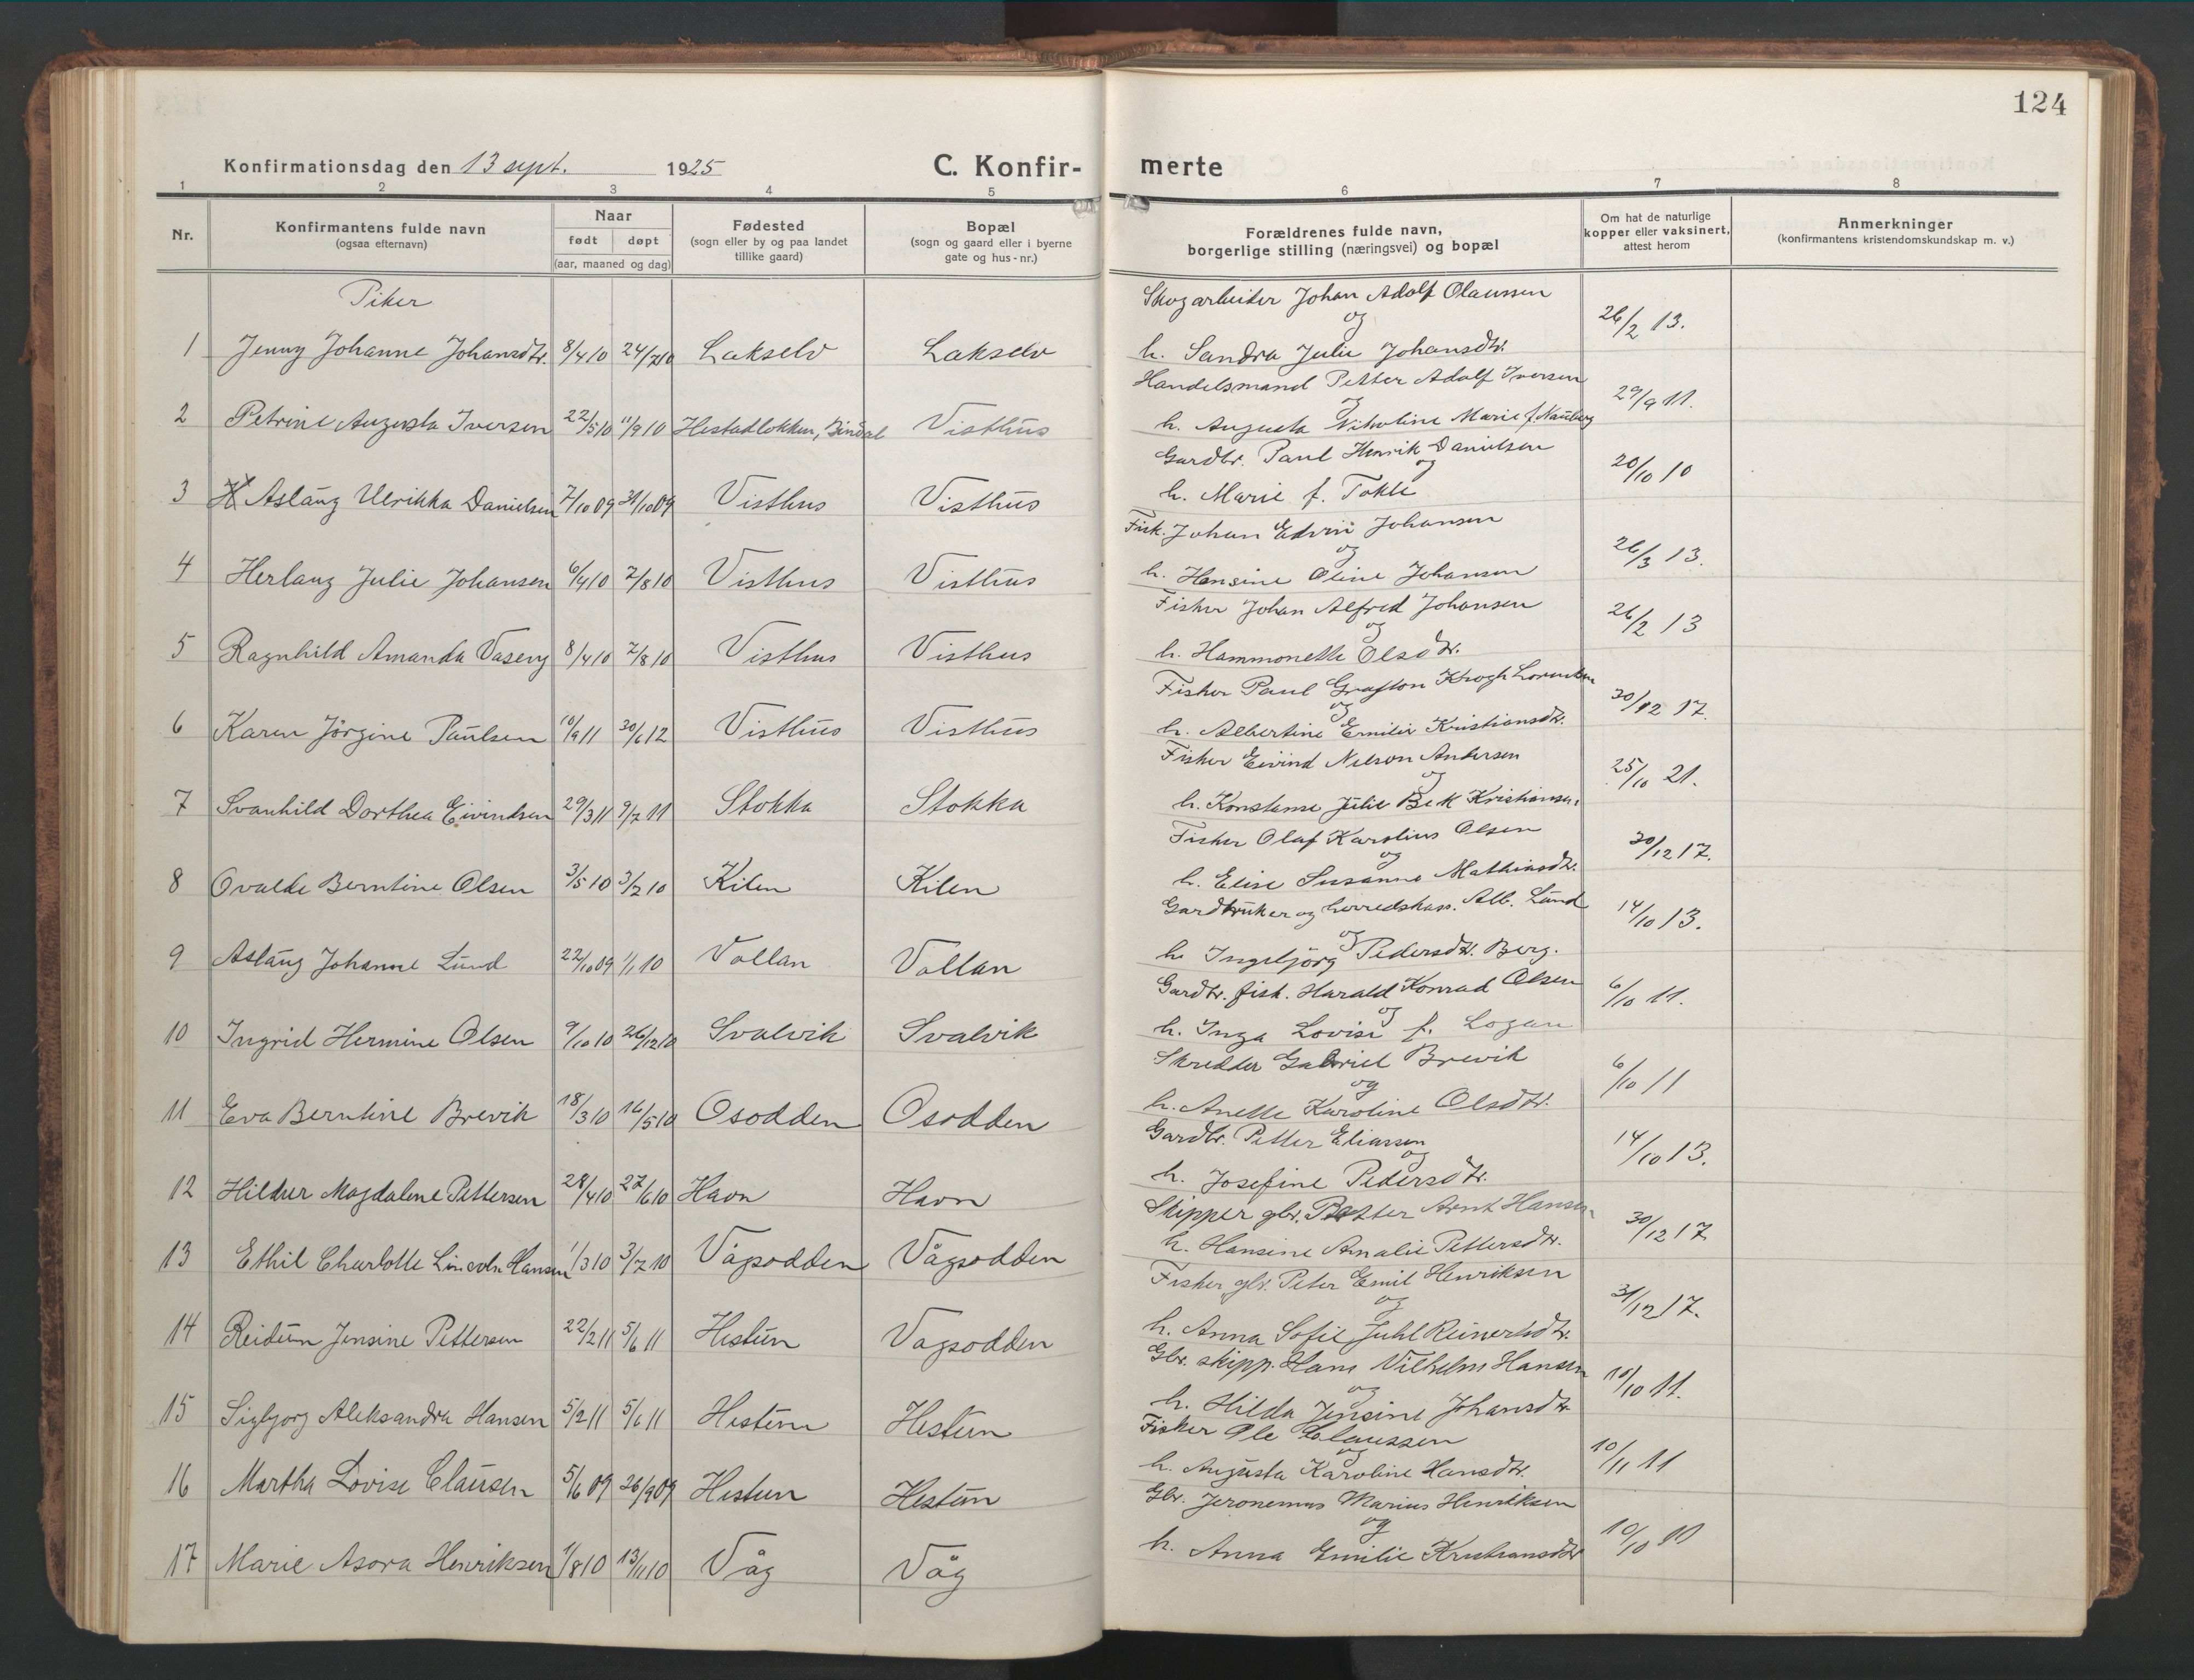 124
Konfirmationsdag den 13 sept. 1925 C. Konfirmerte
1 2 3 4 5 6 7 8
Nr.
Konfirmantens fulde navn
(ogsaa efternavn)
Naar
født døpt
(aar, maaned og dag)
Fødested
(sogn eller by og paa landet
tillike gaard)
Bopæl
(sogn og gaard eller i byerne
gate og hus-nr.)
Forældrenes fulde navn,
borgerlige stilling (næringsvei) og bopæl
Om hat de naturlige
kopper eller vaksinert,
attest herom
Anmerkninger
(konfirmantens kristendomskundskap m. v.)
Piker
Skogarbeider Johan Adolf Olaussen
og
1 Jenny Johanne Johansdtr. 8/4 10 24/7 10 Lakselv Lakselv h. Sandra Julie Johansdtr. 26/2 13.
Handelsmand Petter Adolf Iversen
og
2 Petrine Augusta Iversen 22/5 10 11/9 10 Hestadløkken, Bindal Visthus h. Augusta Nikoline Marie f. 29/9 11.
Gardbr. Paul Henrik Danielsen
og
3 Aslaug Ulrikka Danielsen 7/10 09 31/10 09 Visthus Visthus h. Marie f. Tokle 20/10 10
Fisk. Johan Edvin Johansen
og
4 Herlaug Julie Johansen 6/4 10 7/8 10 Visthus Visthus h. Hansine Oline Johansen 26/3 13.
Fisker Johan Alfred Johansen
og
5 Ragnhild Amanda Vaseng 8/4 10 7/8 10 Visthus Visthus h. Hammonette Olsdtr. 26/2 13
Fisker Paul Grafton Krogh Lorentsen
og
6 Karen Jörgine Paulsen 10/9 11 30/6 12 Visthus Visthus h. Albertine Emilie Kristiansdtr. 30/12 17.
Fisker Eivind Nilson Andersen
og
7 Svanhild Dorthea Eivindsen 29/3 11 9/7 11 Stokka Stokka h. Konstanse Julie Bek Kristiansen. 25/10 21.
Fisker Olaf Karolius Olsen
og
8 Ovalde Berntine Olsen 3/5 10 3/7 10 Kilen Kilen h. Elise Susanna Mathiasdtr. 30/12 17.
Gardbruker og herredskass. Alb. Lund
og
9 Aslaug Johanne Lund 22/10 09 1/1 10 Vollan Vollan h. Ingebjörg Pedersdtr. Berg. 14/10 13.
Gardbr. fisk. Harald Konrad Olsen
og
10 Ingrid Hermine Olsen 9/10 10 26/12 10 Svalvik Svalvik h. Inga Lovise f. Logan 6/10 11.
Skredder Gabriel Brevik
og
11 Eva Berntine Brevik 18/3 10 16/5 10 Osodden Osodden h. Anette Karoline Olsdtr. 6/10 11
Gardbr. Petter Eliassen
og
12 Hildur Magdalene Pettersen 28/4 10 27/6 10 Havn Havn h. Josefine Pedersdtr. 14/10 13.
Skipper gbr. Petter Arnt Hansen
13 Ethil Charlotte Lincoln Hansen 1/3 10 3/7 10 Vågsodden Vågsodden h. Hansine Amalie Pettersdtr. 30/12 17
Fisker, gbr. Peter Emil Henriksen
og
14 Reidun Jensine Pettersen 22/2 11 5/6 11 Hestun Vagsodden h. Anna Sofie Juhl Reinertsdtr. 31/12 17.
Gbr. skipp. Hans Vilhelm Hansen
og
15 Sigbjorg Aleksandra Hansen 5/2 11 5/6 11 Hestun Hestun h. Hilda Jensine Johansdtr 10/10 11.
Fisker Ole Claussen
og
16 Martha Lovise Clausen 5/6 09 26/9 09 Hestun Hestun h. Augusta Karoline Hansdtr. 10/11 11
Gbr. Jeronemus Marius Henriksen
og
17 Marie Asora Henriksen 1/8 10 13/11 10 Våg Våg h. Anna Emilie Kristiansdtr 10/10 11